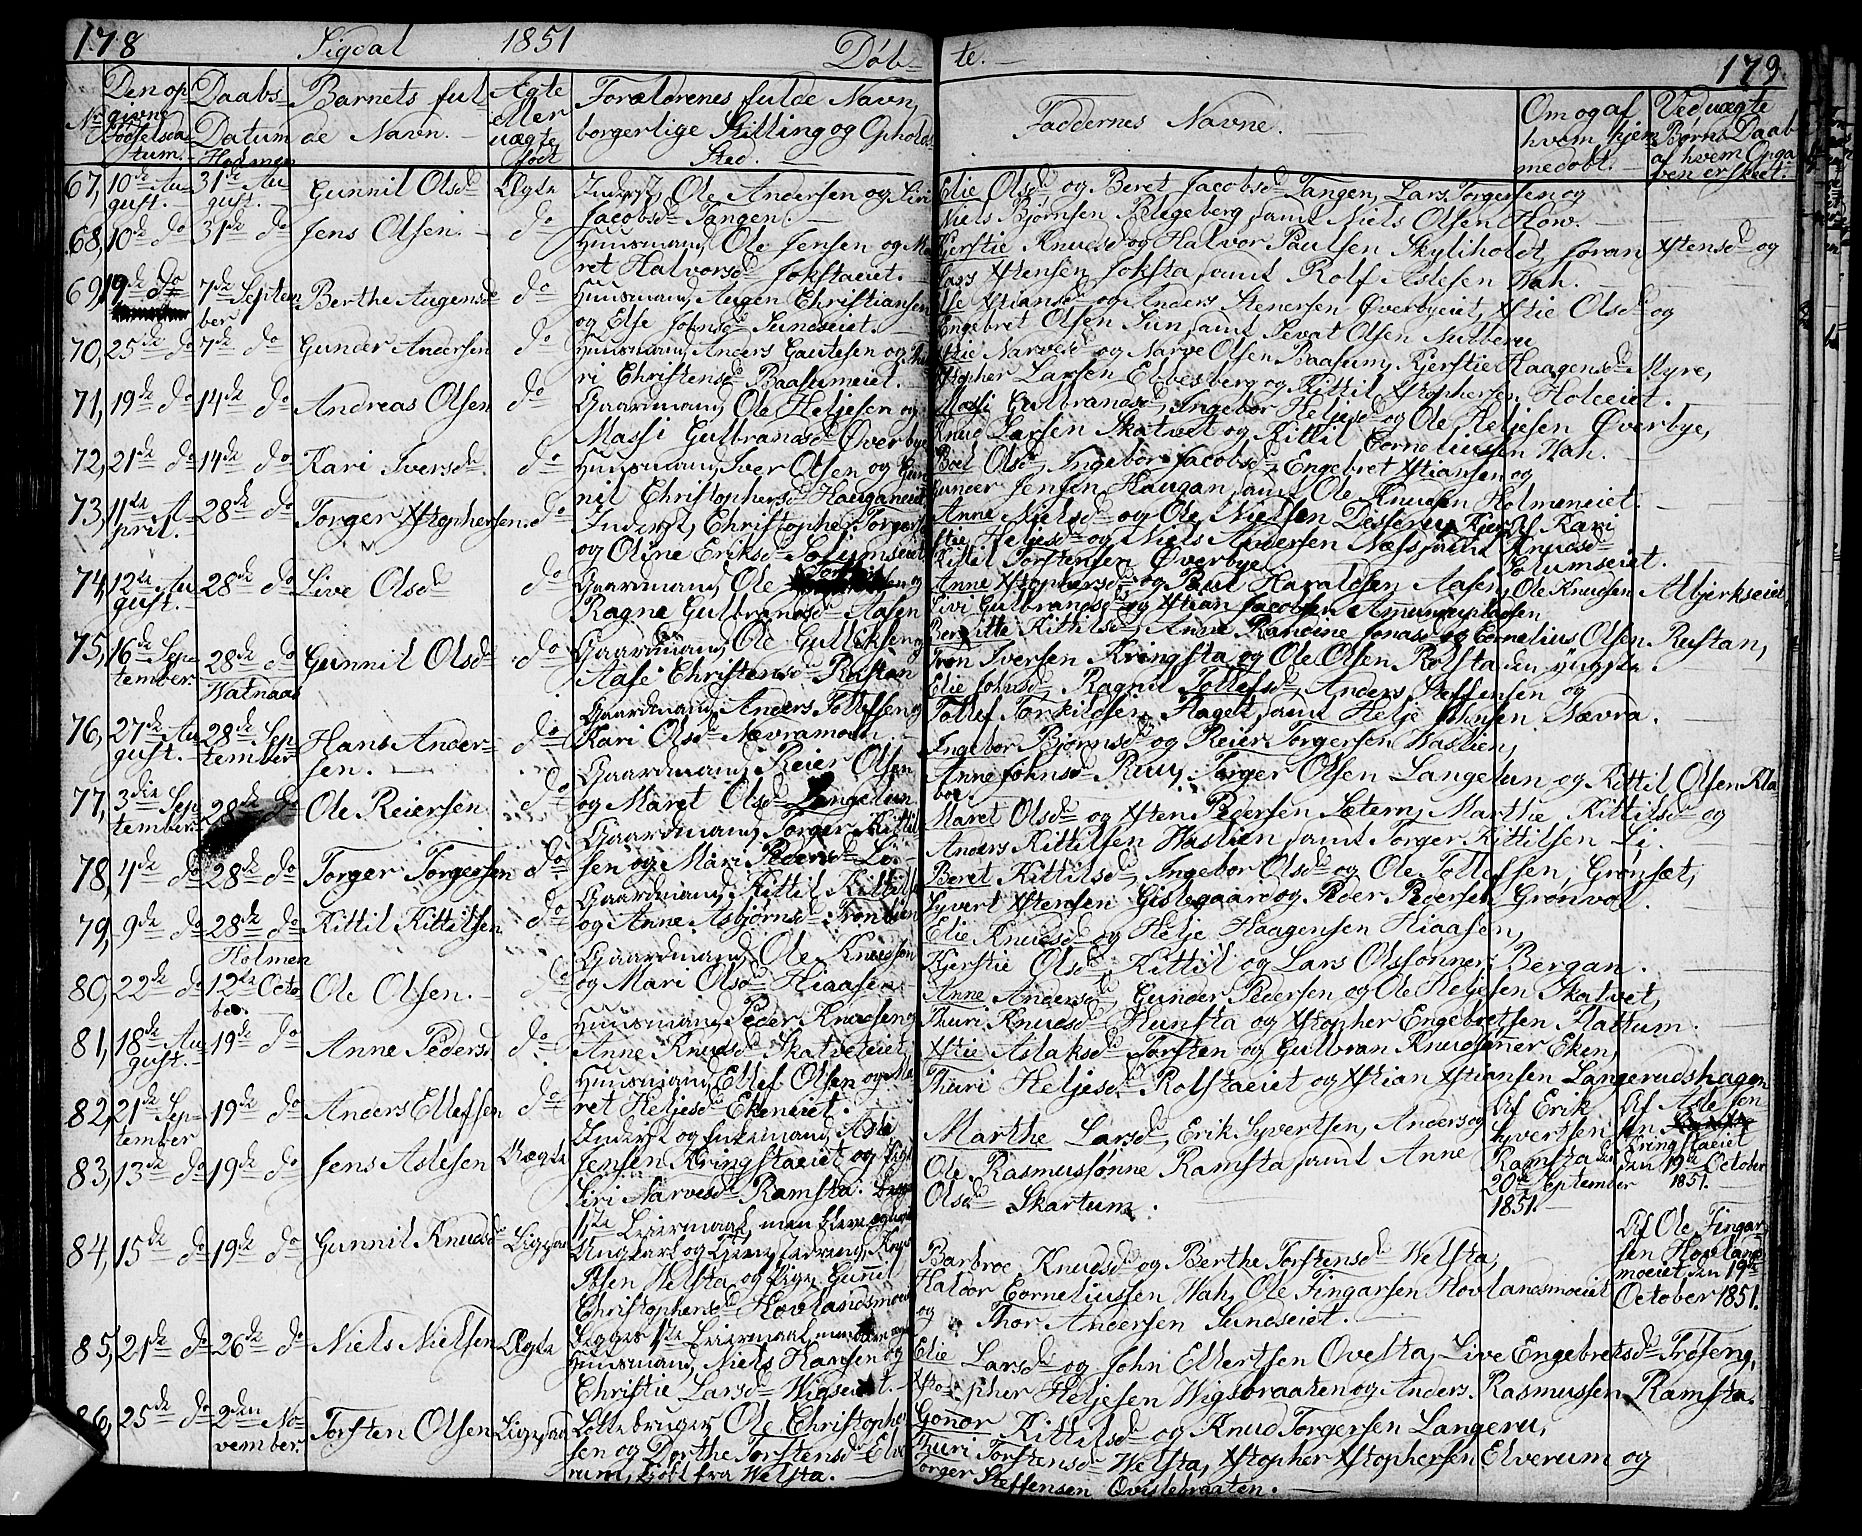 178 Sigdal 1851 Døb-
te. 179
No
Den op
givne
Fødselsda
tum.
Daabs-
Datum
Holmen
Barnets ful
de Navn.
Ægte
eller
uægte
født
Forældrenes fulde Navn,
borgerlige Stilling og Opholds
Sted.
Faddernes Navne.
Om og af
hvem hjem
medøbt.
Ved uægte
Børns Daab
af hvem Opga
ven er skeet.
67, 10de Au
gust. 31de Au
gust. Gunnil Olsd Ægte Inderst, Ole Andersen og Siri
Jacobsd Tangen.
Elie Olsd og Beret Jacobsd Tangen, Lars Torgersen og
Niels Bjørnsen Pelegeberg, samt Niels Olsen How.
68, 10de do 31de do Jens Olsen. do Huusmand, Ole Jensen og Ma
ret Halvorsd Jokstaeiet.
Kjerstie Knudsd og Halvor Paulsen Skyliholdt, Joran Xstensd og
Lars Xstensen Joksta, samt Rolf Aslesen Wah.
69, 19de do 7de Septem
ber Berthe Augensd do Huusmand, Augen Christiansen
og Else Johnsd Sundseiet.
Else Xstiansd og Anders Stenersen Øverbyeiet, Xstie Olsd og
Engebret Olsen Sun, samt Sevat Olsen Nubberu
70, 25de do 7de do Gunder Andersen do Huusmand, Anders Gautesen og Thu
ri Christensd Baasumeiet.
Xstie Narvesd og Narve Olsen Baasum, Kjerstie Haagensd Myre,
Xstopher Larsen Ebbesberg og Kittil Xstophersen Holeeiet.
71, 19de do 14de do Andreas Olsen do Gaardmand, Ole Heljesen og
Massi Gulbrandsd Øverbye
Massi Gulbrandsd, Ingebor Heljesd og Ole Heljesen Øverbye,
Knud Larsen Skatvet og Kittil Corneliussen Hah.
72, 21de do 14de do Kari Iversd. do Huusmand, Iver Olsen og Gun
nil Christophersd Hauganeiet
Boel Olsd, Ingebor Jacobsd, Engebret Xstiansen og
Gunder Jensen Haugan, samt Ole Knudsen Holmeneiet.
73, 11te A-
pril. 28de do Torger Xstophersen. do Inderst, Christopher Torgers
og Oline Eriksd Solumseiet
Anne Nielsd og Ole Nielsen Disserud, Kjer
stie Heljesd og Niels Andersen Næss, samt
Kittil Torstensen Øverbye.
Af Kari
Knudsd
Solumseiet.
74, 12te Au
gust. 28de do Live Olsd do Gaardmand, Ole og
Ragne Gulbrandsd Aasen
Anne Xstophersd og Poul Haraldsen Aasen, Ole Knudsen Albjerkseiet,
Sivi Gulbrandsd og Xstian Jacobsen
75, 16de Sep-
tember 28de do
Watnaas
Gunnil Olsd do Gaardmand, Ole Gulliksen og
Aase Christensd Rustan
Bergitte Kittilsd, Anne Randine Jonasd og Cornelius Olsen Rustan,
Tron Iversen Kringsta og Ole Olsen Rolsta den yngste.
76, 27de Au
gust. 28de Sep
tember Hans Ander-
sen. do Gaardmand, Anders Tollefsen og
Kari Olsd Nævramoen.
Elie Johnsd, Ragnil Tollefsd, Anders Steffensen og
Tollef Torkildsen Haget, samt Helje Johnsen Nævra.
77, 3die Sep
tember 28de do Ole Reiersen do Gaardmand, Reier Olsen
og Maret Olsd Langelun
Ingebor Bjørnsd og Reier Torgersen Haslien,
Anne Johnsd Ruu, Torger Olsen Langelun og Kittil Olsen Kla
boe.
78, 4de do 28de do Torger Torgersen do Gaardmand, Torger Kittil
sen og Mari Pedersd Li.
Maret Olsd og Xsten Pedersen Sætern, Marthe Kittilsd og
Anders Kittilsen Haslien, samt Torger Kittilsen Li.
79, 9de do 28de do
Holmen
Kittil Kittilsen do Gaardmand, Kittil Kittils
og Anne Asbjørnsd Fronlien
Beret Kittilsd, Ingebor Olsd og Ole Tollefsen, Grønsæt,
Syvert Xstensen Gislegaard og Peder Pedersen Grønvol.
80, 22de do 12te Octo
ber. Ole Olsen. do Gaardmand, Ole Knudsen
og Mari Olsd Hiaasen
Elie Knudsd og Helje Haagensen Hiaasen,
Kjerstie Olsd, Kittil og Lars Olssønner Bergan.
81, 18de Au
gust. 19de do Anne Pedersd do Huusmand, Peder Knudsen og
Anne Knudsd Skatveteiet
Anne Andersd, Gunder Pedersen og Ole Heljesen Skatvet,
Thuri Knudsd Hunsta og Xstopher Engebretsen Flattum.
82, 21de Sep-
tember 19de do Anders Ellefsen do Huusmand, Ellef Olsen og Ma
ret Heljesd Ekeneiet.
Xstie Aslaksd, Torsten og Gulbran Knudsønner Eken,
Thuri Heljesd Rolstaeiet og Xstian Xstiansen Langerudshagen
83, 13de do 19de do Jens Aslesen Uægte Inderst og Enkemand, Asle
Jensen Kringstaeiet og Pige
Siri Narvesd Ramsta.
1ste Leiermaal,
Marthe Larsd, Erik Syvertsen, Anders og
Ole Rasmussønne Ramsta, samt Anne
Olsd Skartum.
Af Erik
Syvertsen
Ramsta den
20de September
1851.
Af Asle Jen-
sen
Kringstaeiet
den 19de October
1851.
84, 15de do 19de do Gunnil Knudsd Ungkarl og Knud
Welsta og Pige Gunnil
Christophersd Hovlandsmoeiet
Begges 1ste Leiermaal,
Barbroe Knudsd og Berthe Torstensd Welsta,
Halvor Corneliussen Wah, Ole Fingarsen Hovlandsmoeiet
og Thor Andersen Sundseiet.
Af Ole Fingar-
sen Hovlands
moeiet, den 19de
October 1851.
85, 21de do 26de do Niels Nielsen Ægte
Huusmand, Niels Hansen og
Christie Larsd Wigseiet.
Elie Larsd og John Ellertsen Ovelta, Live Engebretsd Trøseng,
Xstopher Heljesen Wigsbraaten og Anders Rasmussen Ramsta.
86, 25de do 2den No
vember. Torsten Olsen Leilebruger Ole Christopher
sen og Dorthe Torstensd Elve
rum, født fra Welsta.
Gonor Kittilsd og Knud Torgersen Langeru,
Thuri Torstensd Welsta, Xstopher Xstophersen Elverum og
Torger Steffensen Qvislebraaten.